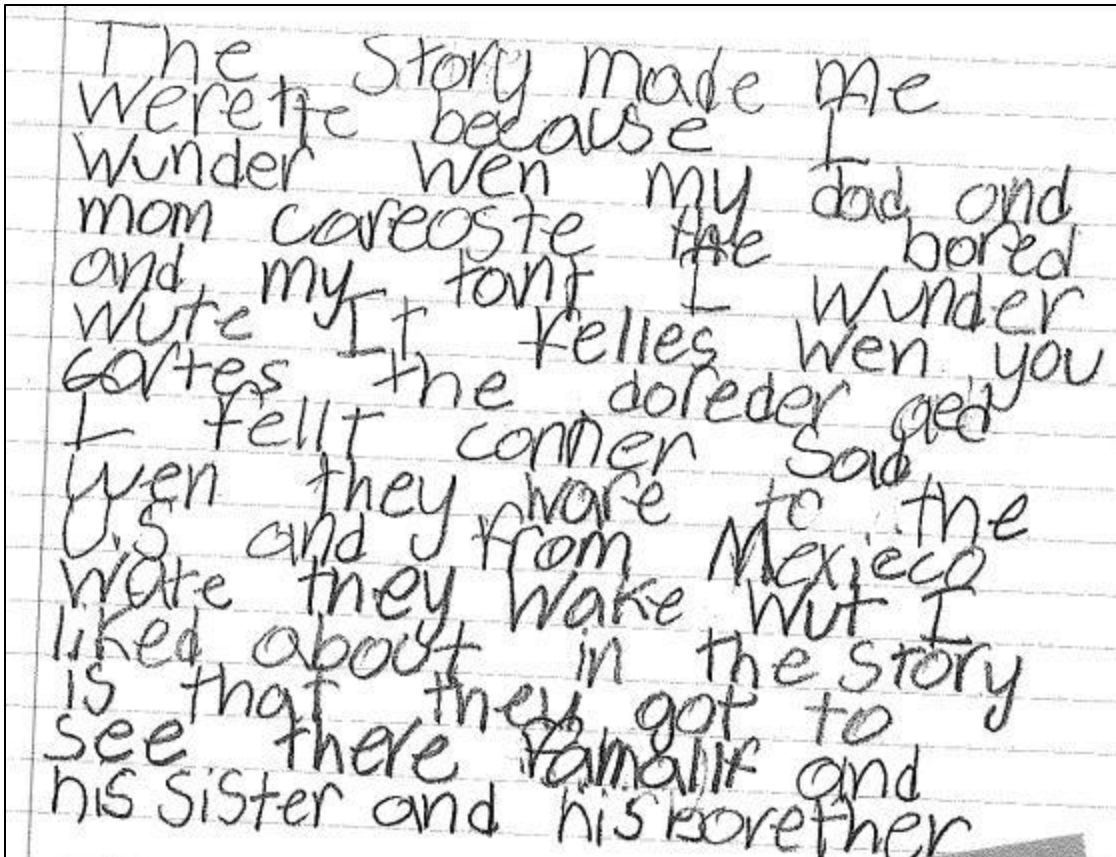 The Story made me
werette because I
wunder wen my dad and
mom careoste the bored
and my tant I wunder
wute It felles wen you
cortes the doreder aed
I fellt conner sad
wen they ware to the
U.S and from Mexieco
wate they wake wut I
liked about in the story
is that they got to
see there famalif and
his sister and his borether